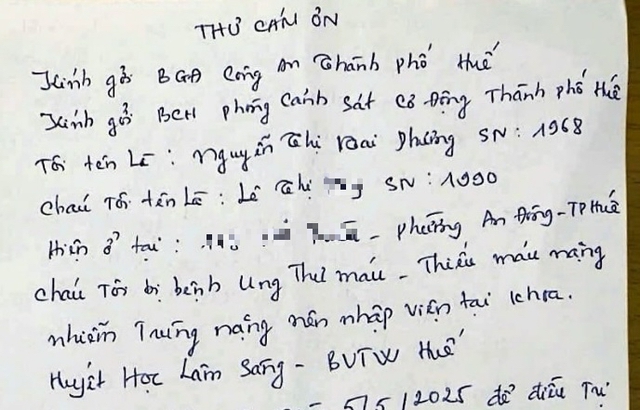 THƯ CẢM ƠN
Kính gởi BGĐ Công An Thành phố Huế
Kính gởi BCH phòng Cảnh Sát Cơ Động Thành phố Huế
Tôi tên Là : Nguyễn Thị Mai Phương SN : 1968
Cháu Tôi tên Là : Lê Thị SN : 1990
Hiện ở tại : - phường An Đông - TP Huế
Cháu Tôi bị bệnh Ung Thư máu - Thiếu máu nặng
nhiễm Trùng nặng nên nhập viện tại khoa.
Huyết Học Lâm Sàng - BVTW Huế
5/5/2025 để điều Trị